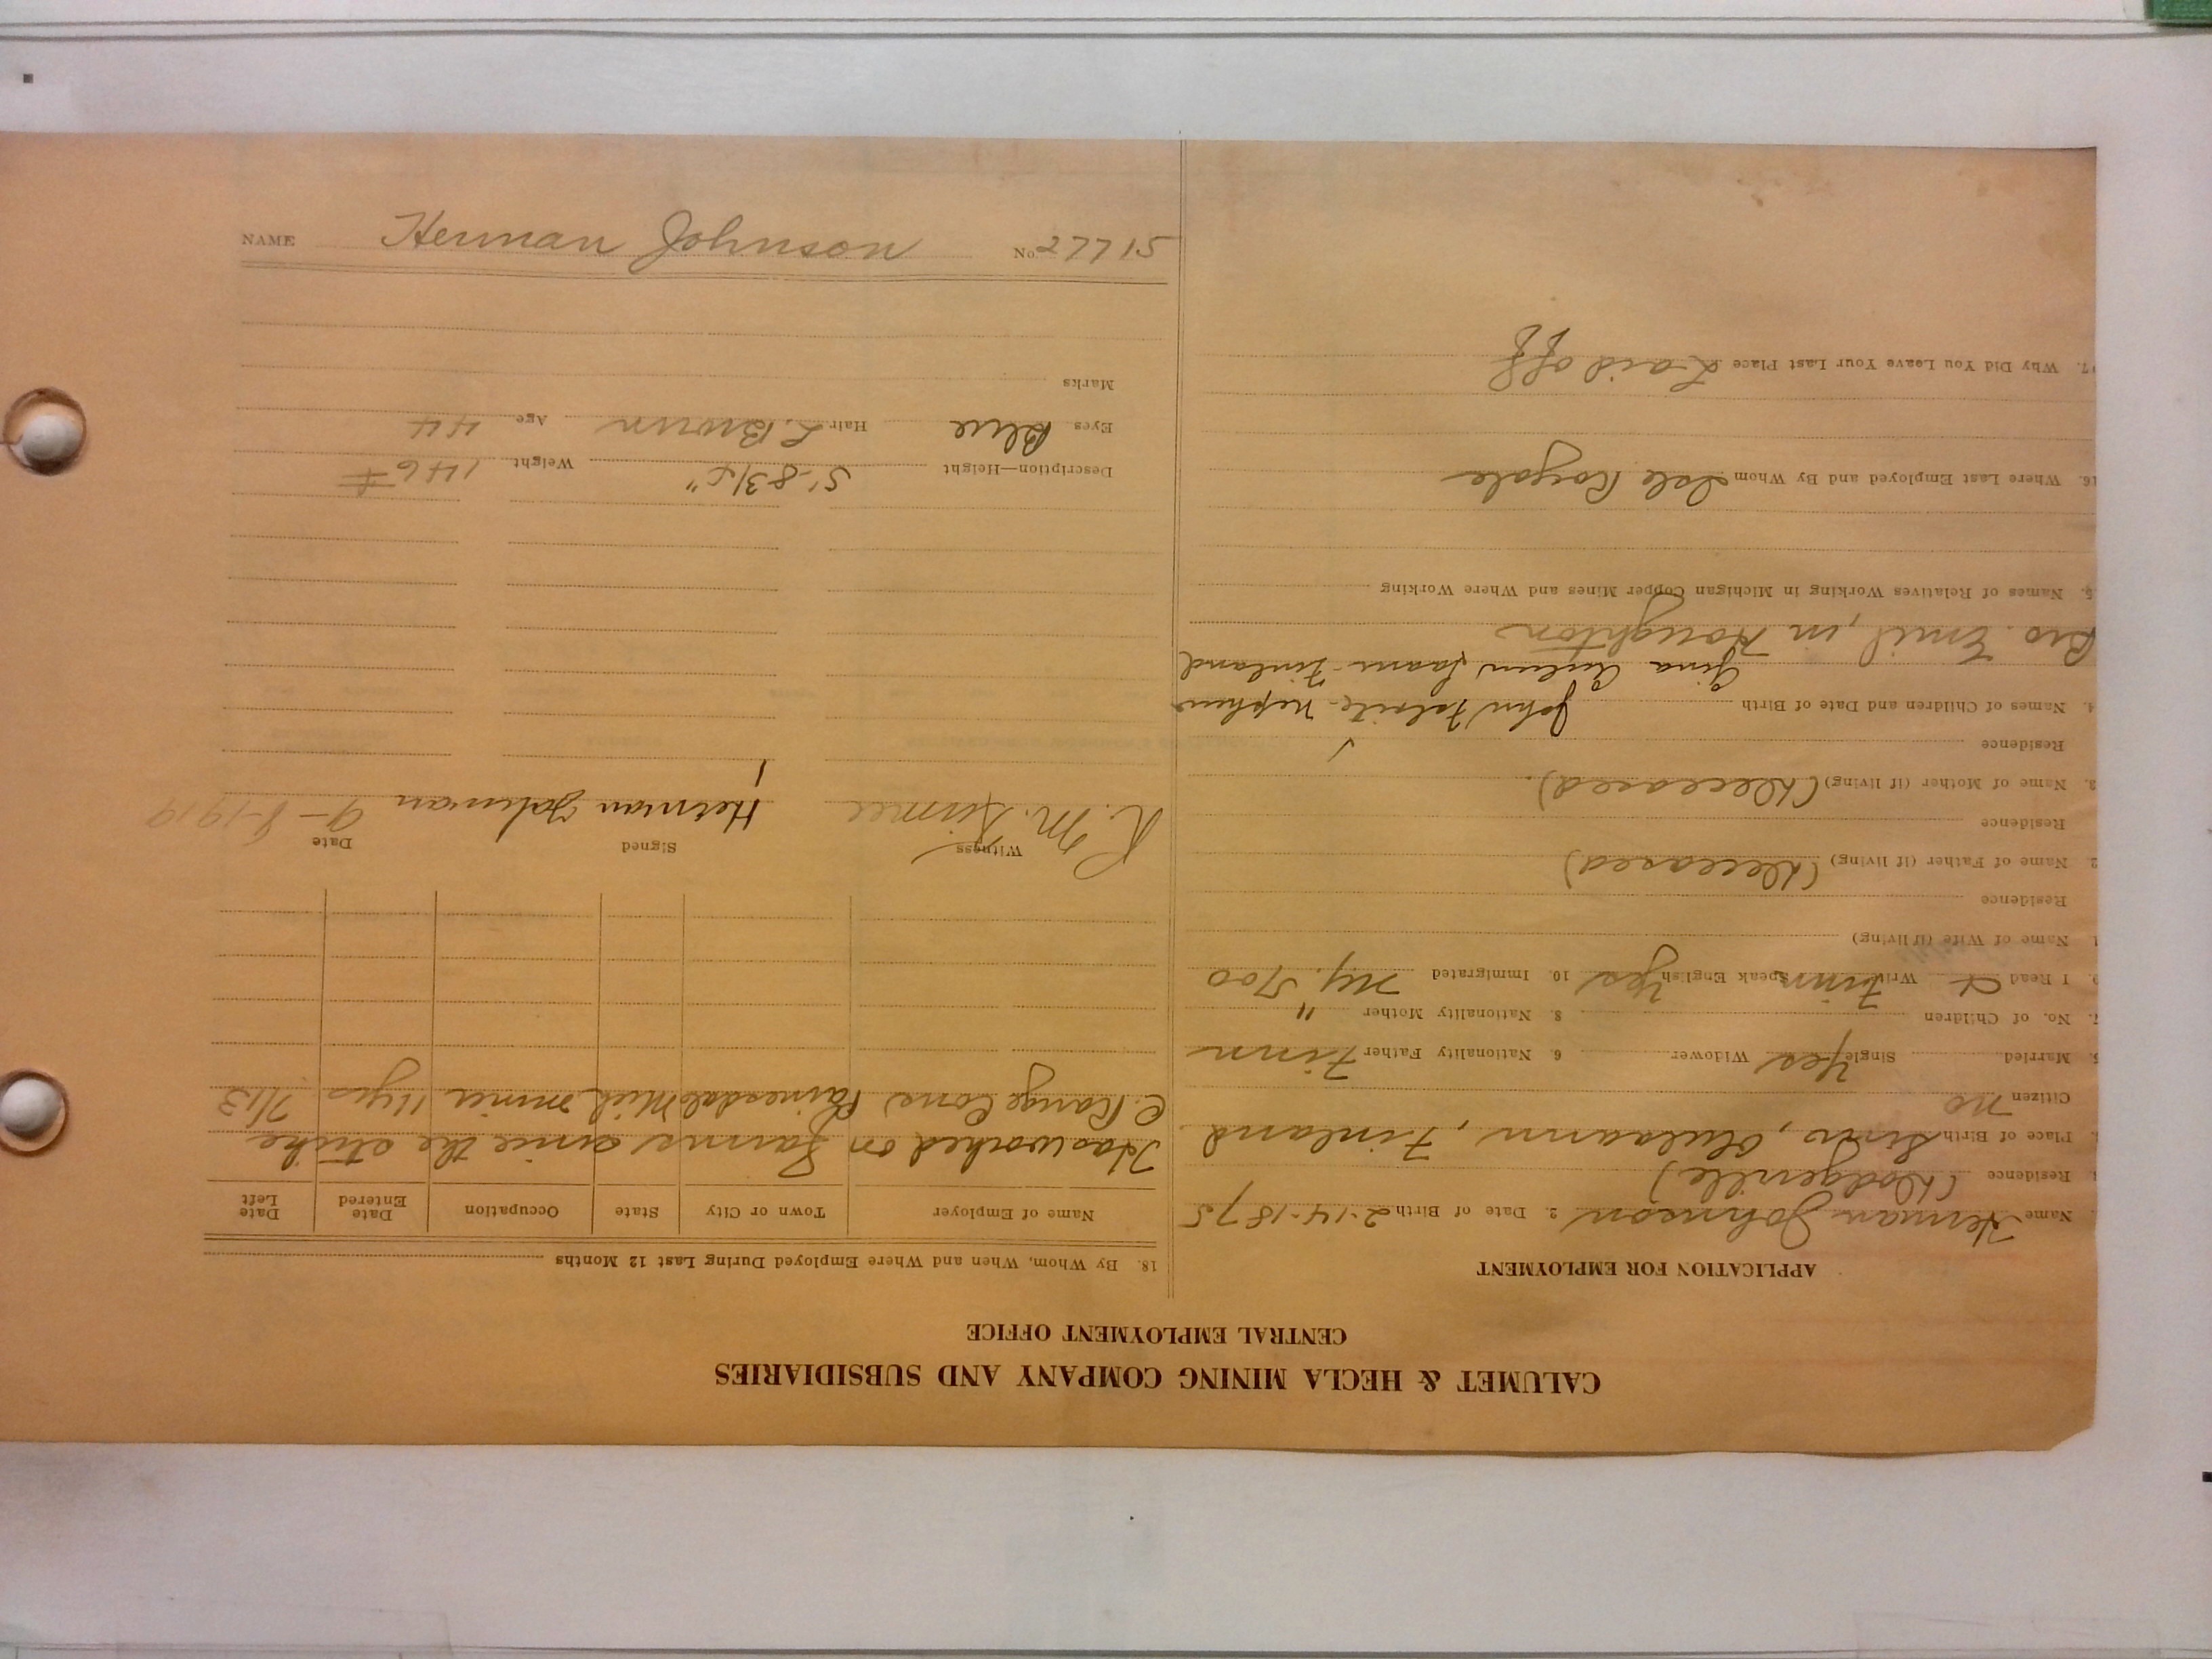 CALUMET & HECLA MINING COMPANY AND SUBSIDIARIES
CENTRAL EMPLOYMENT OFFICE
APPLICATION FOR EMPLOYMENT
Name Herman Johnson 2. Date of Birth 2-14-1875
Residence (Dodgeville)
Place of Birth Oulaann, Finland.
Citizen no
5. Married Single Yes Widower 6. Nationality Father Finn
7. No. of Children 8. Nationality Mother "
9. I Read & Write Finn Speak English Yes 10. Immigrated Ny. 5/00
1. Name of Wife (if living)
Residence
2. Name of Father (if living) (Deceased)
Residence
3. Name of Mother (if living) (Deceased).
Residence
4. Names of Children and Date of Birth John - Nephew
Finland
Bro. Emil, in Houghton
5. Names of Relatives Working in Michigan Copper Mines and Where Working
16. Where Last Employed and By Whom Isle Royale
17. Why Did You Leave Your Last Place Laid off
18. By Whom, When and Where Employed During Last 12 Months
Name of Employer Town or City State Occupation Date Entered Date Left
Has worked on Farms since the strike
C. Range Cons Painesdale Mich miner 11 yrs 7/13
Witness Signed Date
R. M. Herman Johnson 9-8-1919
Description—Height 5'-8 3/4" Weight 146 #
Eyes Blue Hair L. Brown Age 44
Marks
NAME Herman Johnson No. 27715